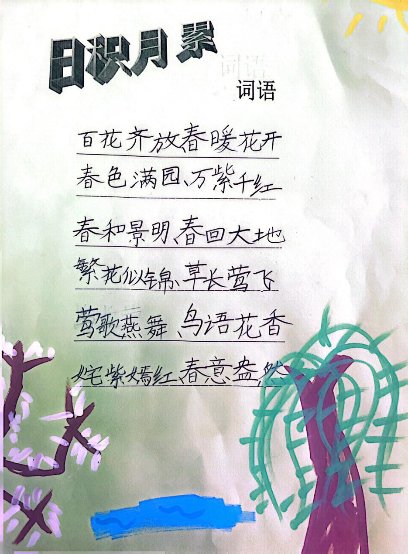 日积月累
词语
百花齐放、春暖花开
春色满园、万紫千红
春和景明、春回大地
繁花似锦、草长莺飞
莺歌燕舞、鸟语花香
姹紫嫣红、春意盎然